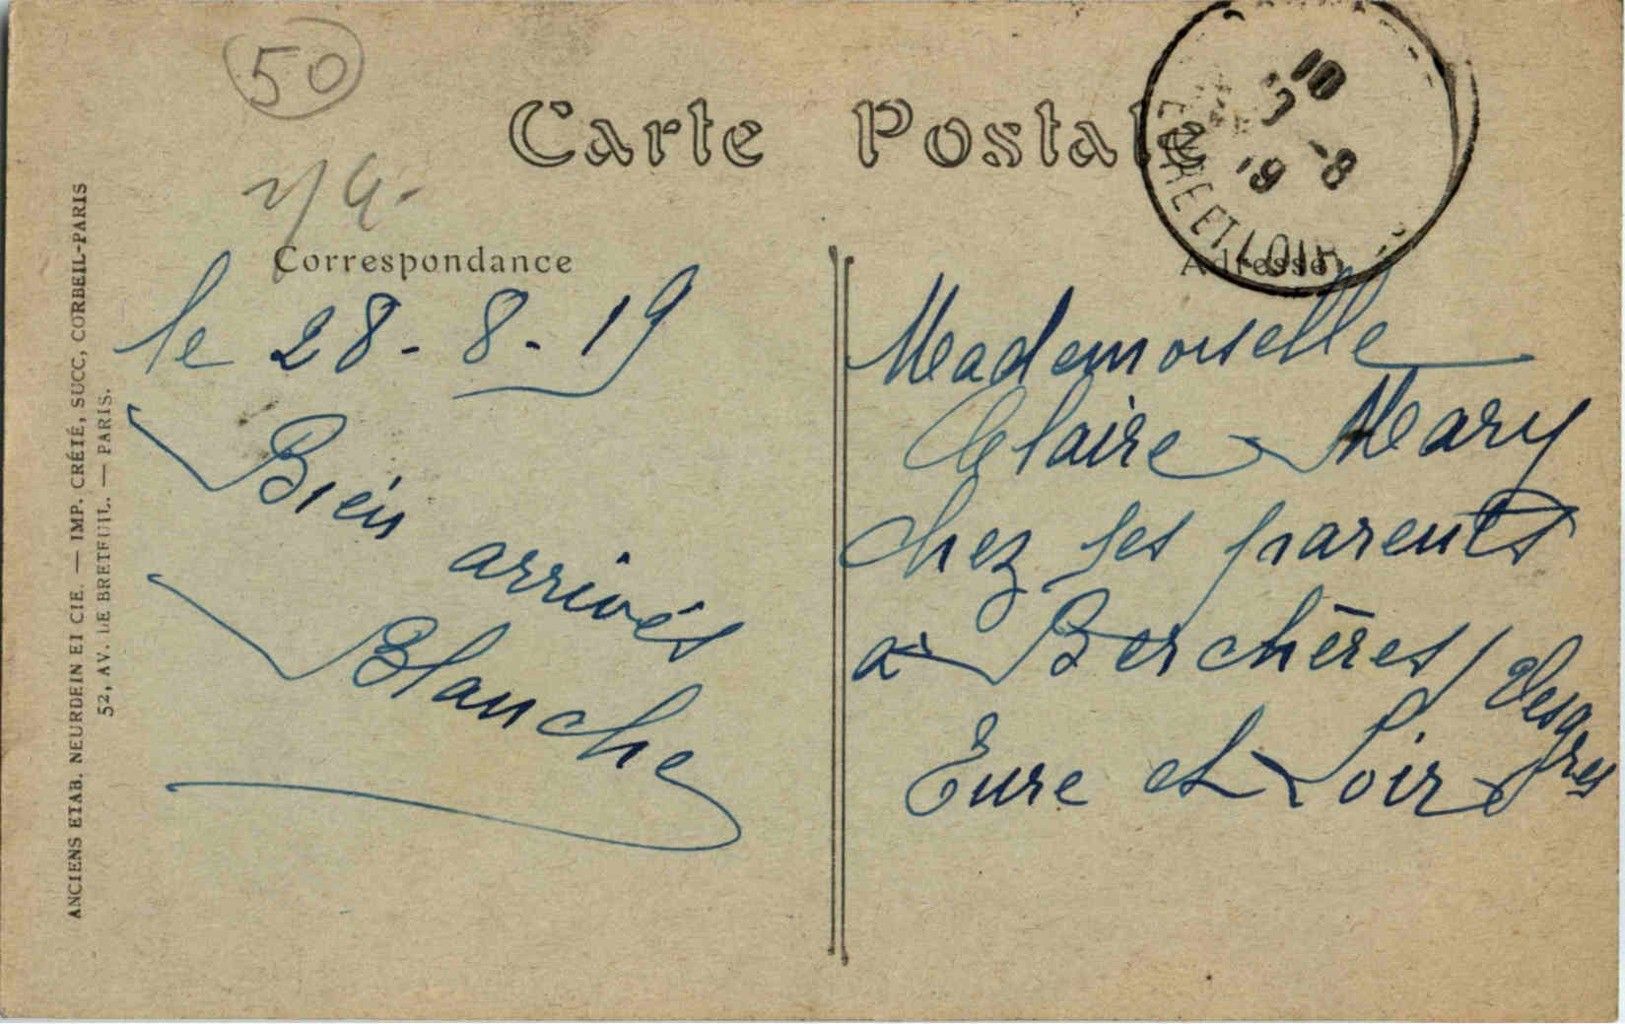 50
Carte Postale
Correspondance
Adresse
EURE ET LOIR
10
-8
19
le 28-8-19
Bien arrivés
Blanche
Mademoiselle
Claire Mary
chez ses parents
à Berchères/Vesgres
Eure et Loir
ANCIENS ETAB. NEURDEIN ET CIE. — IMP. CRÉTÉ, SUCC, CORBEIL-PARIS
52, AV. DE BRETEUIL. — PARIS.